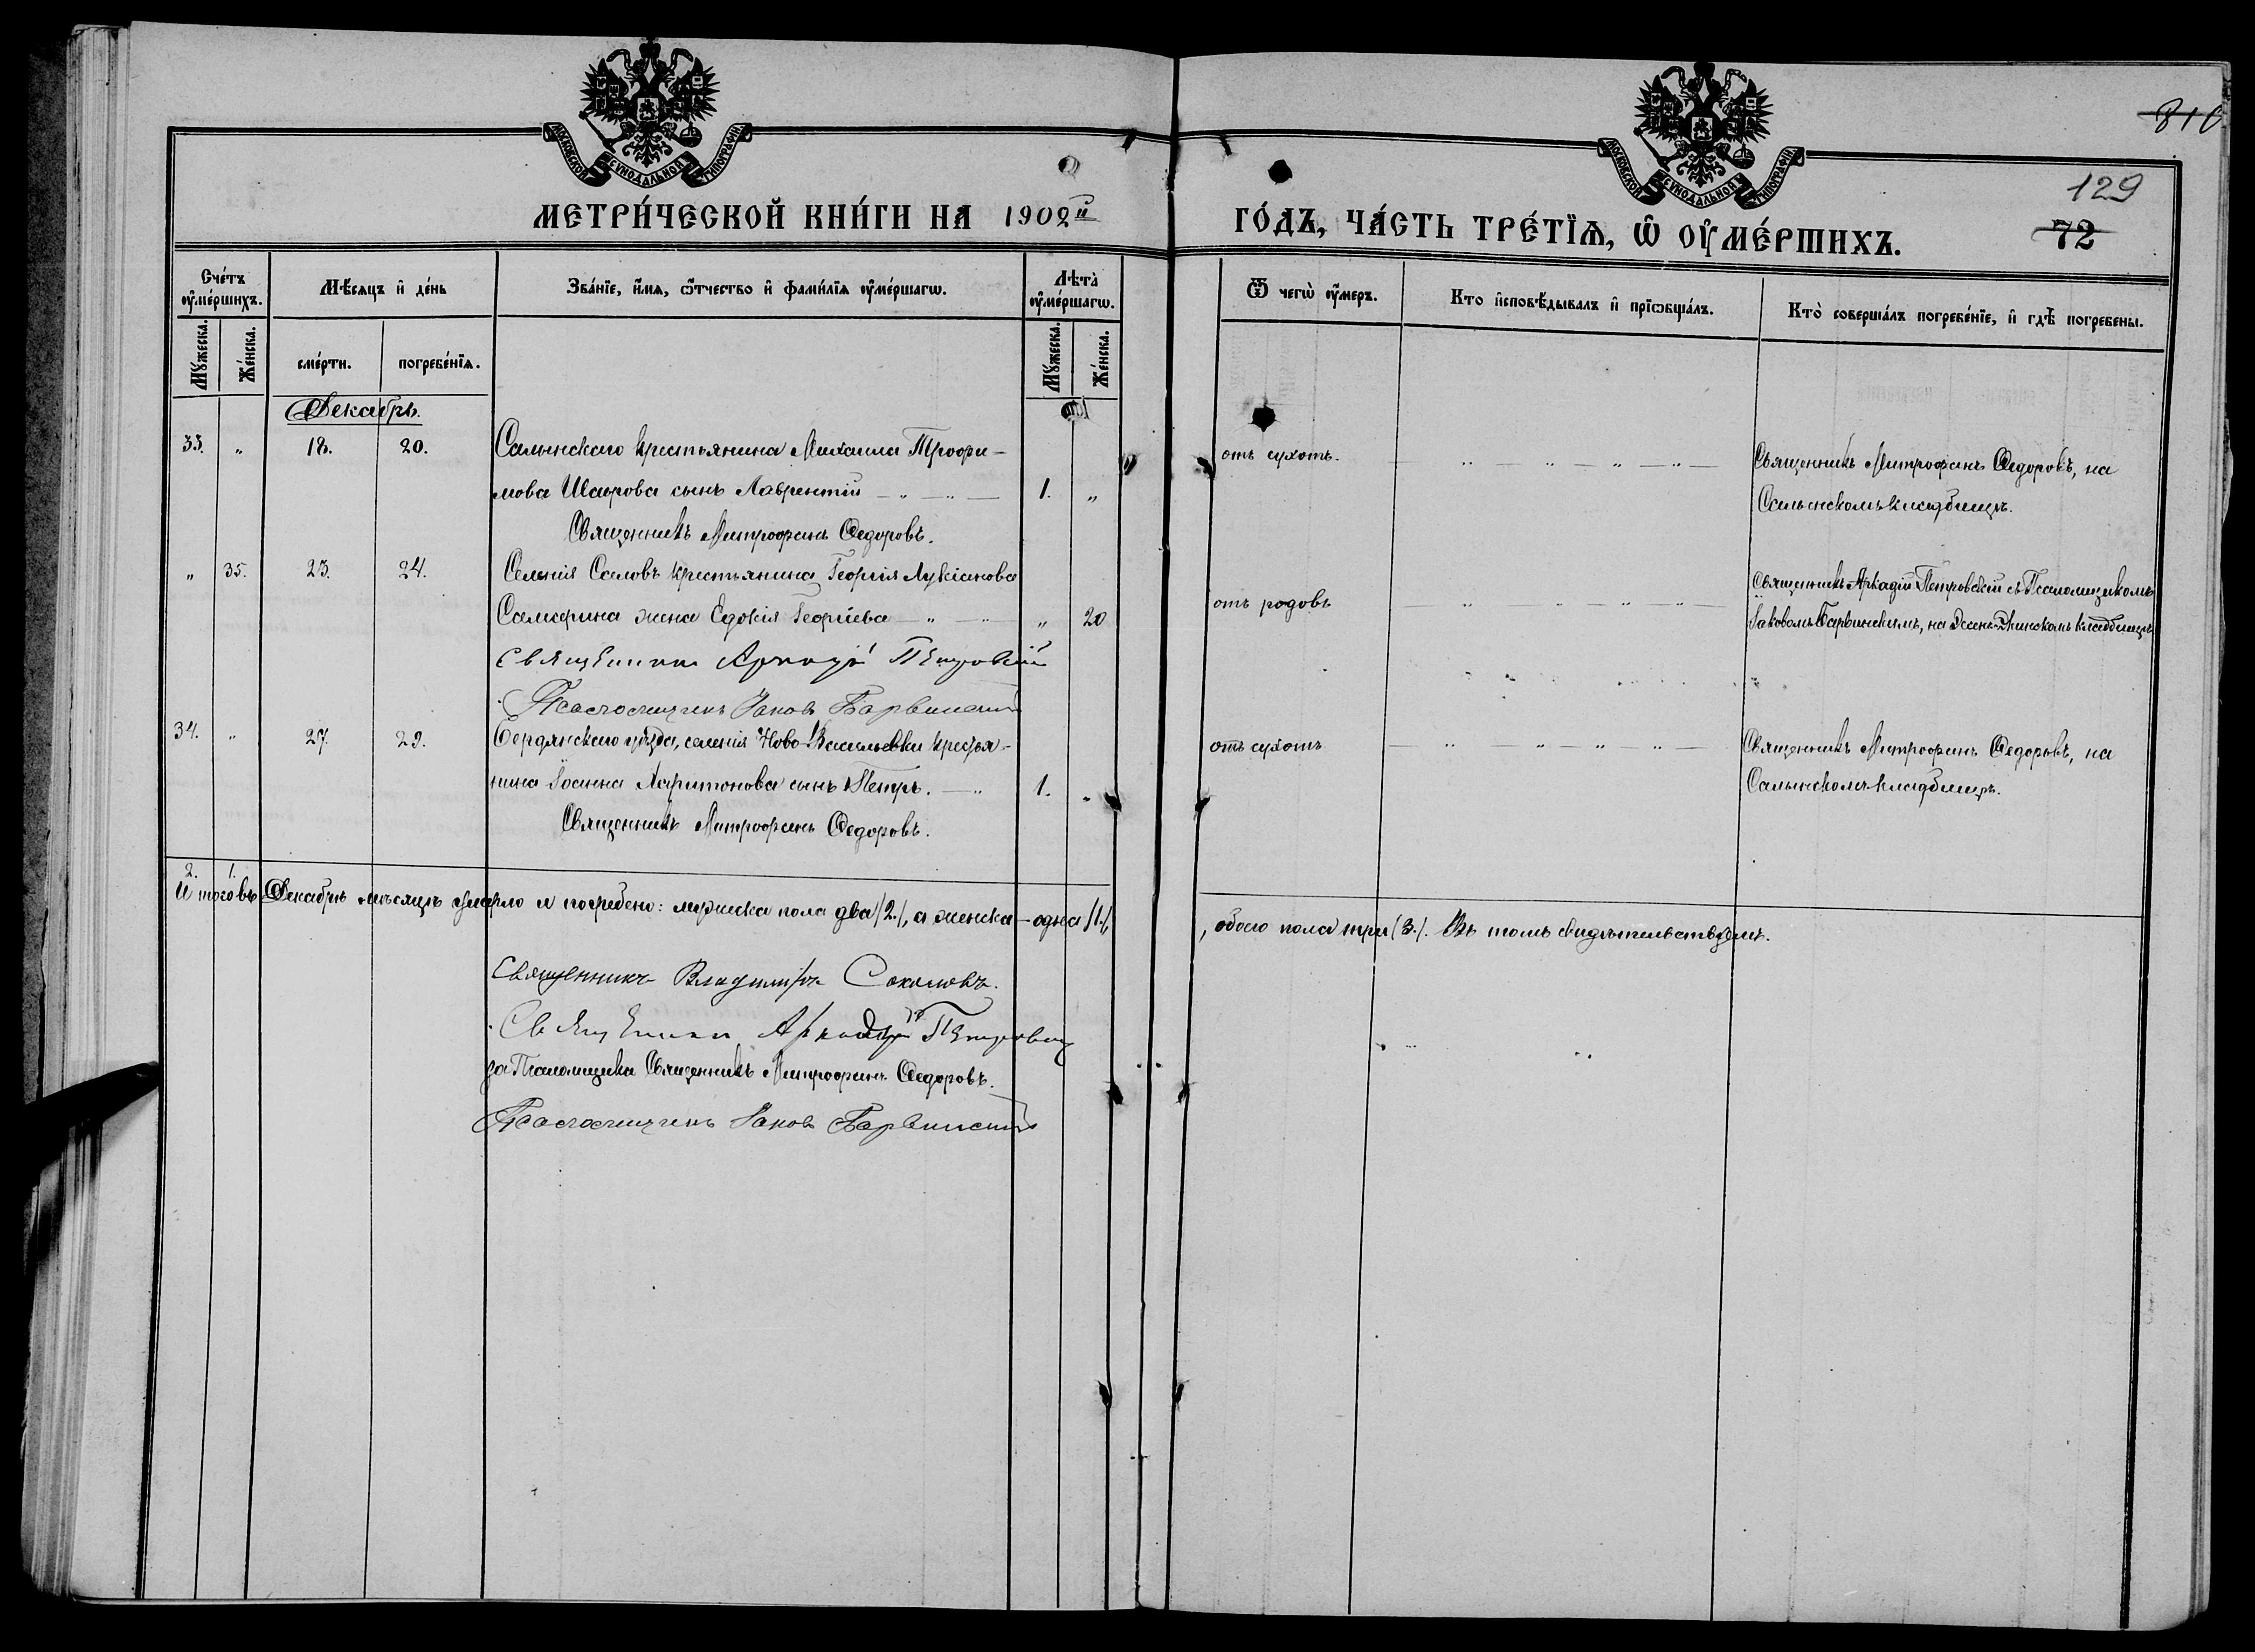 МОСКОВСКОЙ СУНОДАЛЬНОЙ ТИПОГРАФІИ
МЕТРИ́ЧЕСКОЙ КНИ́ГИ НА 1902й
МОСКОВСКОЙ СУНОДАЛЬНОЙ ТИПОГРАФІИ
129
72
ГО́ДЪ, ЧА́СТЬ ТРЕ́ТЇѦ, Ѡ ОУМЕ́РШИХЪ.
Сче́тъ оуме́ршихъ.
Мѣ́сяцъ и де́нь
Зва́нїе, и́мя, ѻ́тчество и фами́лїя оуме́ршагѡ.
Лѣта̀ оуме́ршагѡ.
Мꙋ́жеска.
Же́нска.
сме́рти.
погребе́нїя.
Мꙋ́жеска.
Же́нска.
Ѿ чегѡ̀ оу́меръ.
Кто исповѣ́дывалъ и прїѡбща́лъ.
Кто̀ соверша́лъ погребе́нїе, и гдѣ̀ погребены.
Декабрь.
33. „ 18. 20. Салынскаго крестьянина Михаила Трофи-
мова Шаурова сынъ Лаврентій 1. „
Священникъ Митрофанъ Ѳедоровъ.
отъ сухотъ.
Священникъ Митрофанъ Ѳедоровъ, на
Салынскомъ кладбищѣ.
„ 35. 23. 24. Селенія крестьянина Георгія Лукіанова
жена Евдокія Георгіева „ 20
Священникъ Аркадій Петровскій
Псаломщикъ Іаковъ Барвинскій
отъ родовъ
Священникъ Аркадій Петровскій съ Псаломщикомъ
Іаковомъ Барвинскимъ, на кладбищѣ
34. „ 27. 29. Бердянскаго уѣзда, селенія Ново-Васильевки крестья-
нина Іоанна Харитонова сынъ Петръ. 1. „
Священникъ Митрофанъ Ѳедоровъ.
отъ сухотъ
Священникъ Митрофанъ Ѳедоровъ, на
Салынскомъ кладбищѣ.
2. 1.
Итого въ Декабрѣ мѣсяцѣ умерло и погребено: мужеска пола два /2./, а женска – одна /1./,
обоего пола три (3.). Въ томъ свидѣтельствуемъ.
Священникъ Владиміръ Соколовъ.
Священникъ Аркадій Петровскій
за Псаломщика Священникъ Митрофанъ Ѳедоровъ.
Псаломщикъ Іаковъ Барвинскій